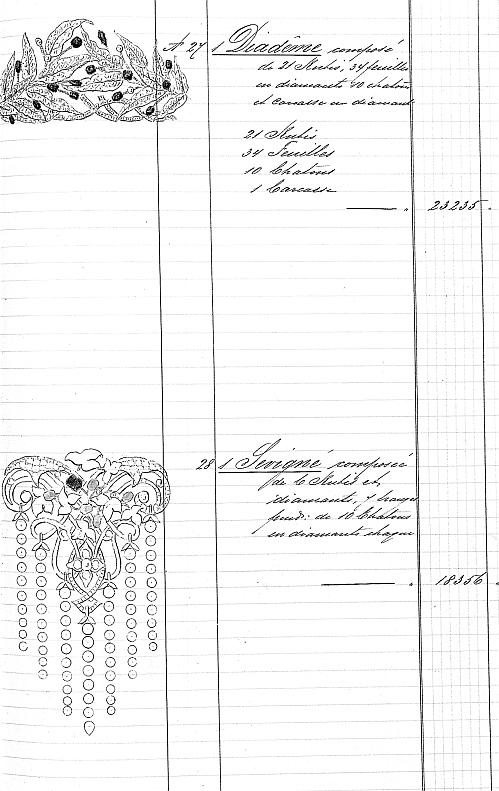 N 27 1 Diadême composé
de 21 Rubis, 34 feuilles
en diamants 10 chatons
et Carcasse en diamant
21 Rubis
34 Feuilles
10 Chatons
1 Carcasse
23235
28 1 Sevigné composée
de 6 Rubis et
diamants, 7 branches
pend: de 10 Chatons
en diamants chaque
18356